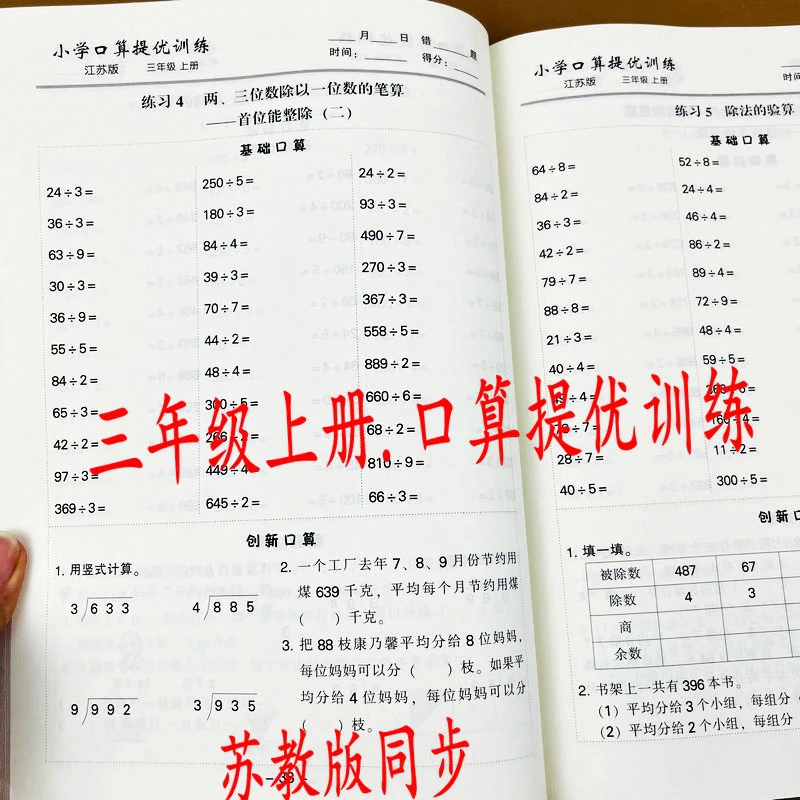 小学口算提优训练
江苏版 三年级 上册
____月____日 错____题
时间：____ 得分：____
练习 4 两、三位数除以一位数的笔算
——首位能整除（二）
基础口算
24÷3= 250÷5= 24÷2=
36÷3= 180÷3= 93÷3=
63÷9= 84÷4= 490÷7=
30÷3= 39÷3= 270÷3=
36÷9= 70÷7= 367÷3=
55÷5= 44÷2= 558÷5=
84÷2= 48÷4= 889÷2=
65÷3= 300÷5= 660÷6=
42÷2= 266÷2= 68÷2=
97÷3= 449÷4= 810÷9=
369÷3= 645÷2= 66÷3=
创新口算
1. 用竖式计算。
3 633 4 885
9 992 3 935
2. 一个工厂去年 7、8、9 月份节约用
煤 639 千克，平均每个月节约用煤
（ ）千克。
3. 把 88 枝康乃馨平均分给 8 位妈妈，
每位妈妈可以分（ ）枝。如果平
均分给 4 位妈妈，每位妈妈可以分
（ ）枝。
- 38 -
小学口算提优训练
江苏版 三年级 上册
时间
练习 5 除法的验算
64÷8= 52÷8=
84÷2= 24÷4=
36÷3= 46÷4=
42÷2= 86÷2=
79÷7= 89÷4=
88÷8= 72÷9=
21÷3= 48÷4=
40÷4= 59÷5=
28÷7= 11÷2=
40÷5= 300÷5=
创新口
1. 填一填。
被除数 487 67
除数 4 3
商
余数
2. 书架上一共有 396 本书。
（1）平均分给 3 个小组，每组分（
（2）平均分给 2 个小组，每组分
三年级上册.口算提优训练
苏教版同步